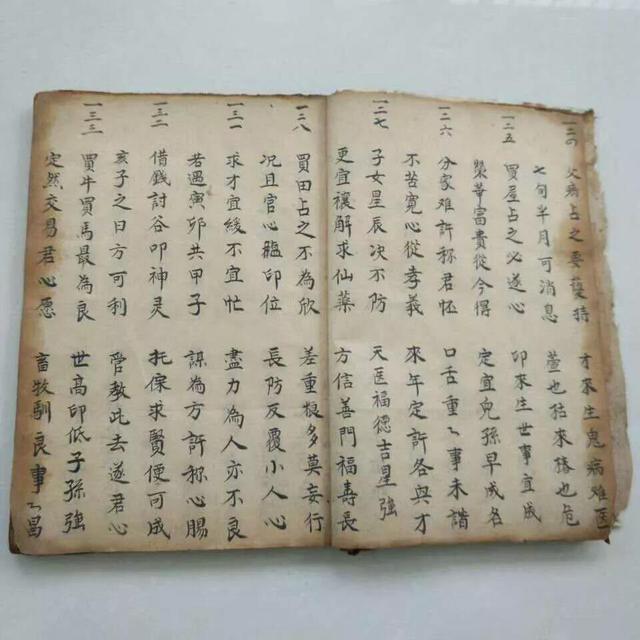 一二四 父病占之要護持 才來生鬼病难医
七旬半月可消息 萱也枯來椿也危
一二五 買屋占之必遂心 印來生世事宜成
榮華富貴從今得 定宜兒孫早成名
一二六 分家难許称君怀 口舌重〻事未諧
不苦寬心從孝義 來年定許各與才
一二七 子女星辰決不防 天医福德吉星強
更宜禳解求仙藥 方信善門福壽長
一二八 買田占之不為欣 差重粮多莫妄行
況且官心臨印位 長防反覆小人心
一三一 求才宜緩不宜忙 盡力為人亦不良
若遇寅卯共甲子 謀為方許称心賜
一三二 借錢討谷叩神灵 托保求賢便可成
亥子之日方可利 管教此去遂君心
一三三 買牛買馬最為良 世高印低子孫強
定然交易君心愿 畜牧馴良事〻昌